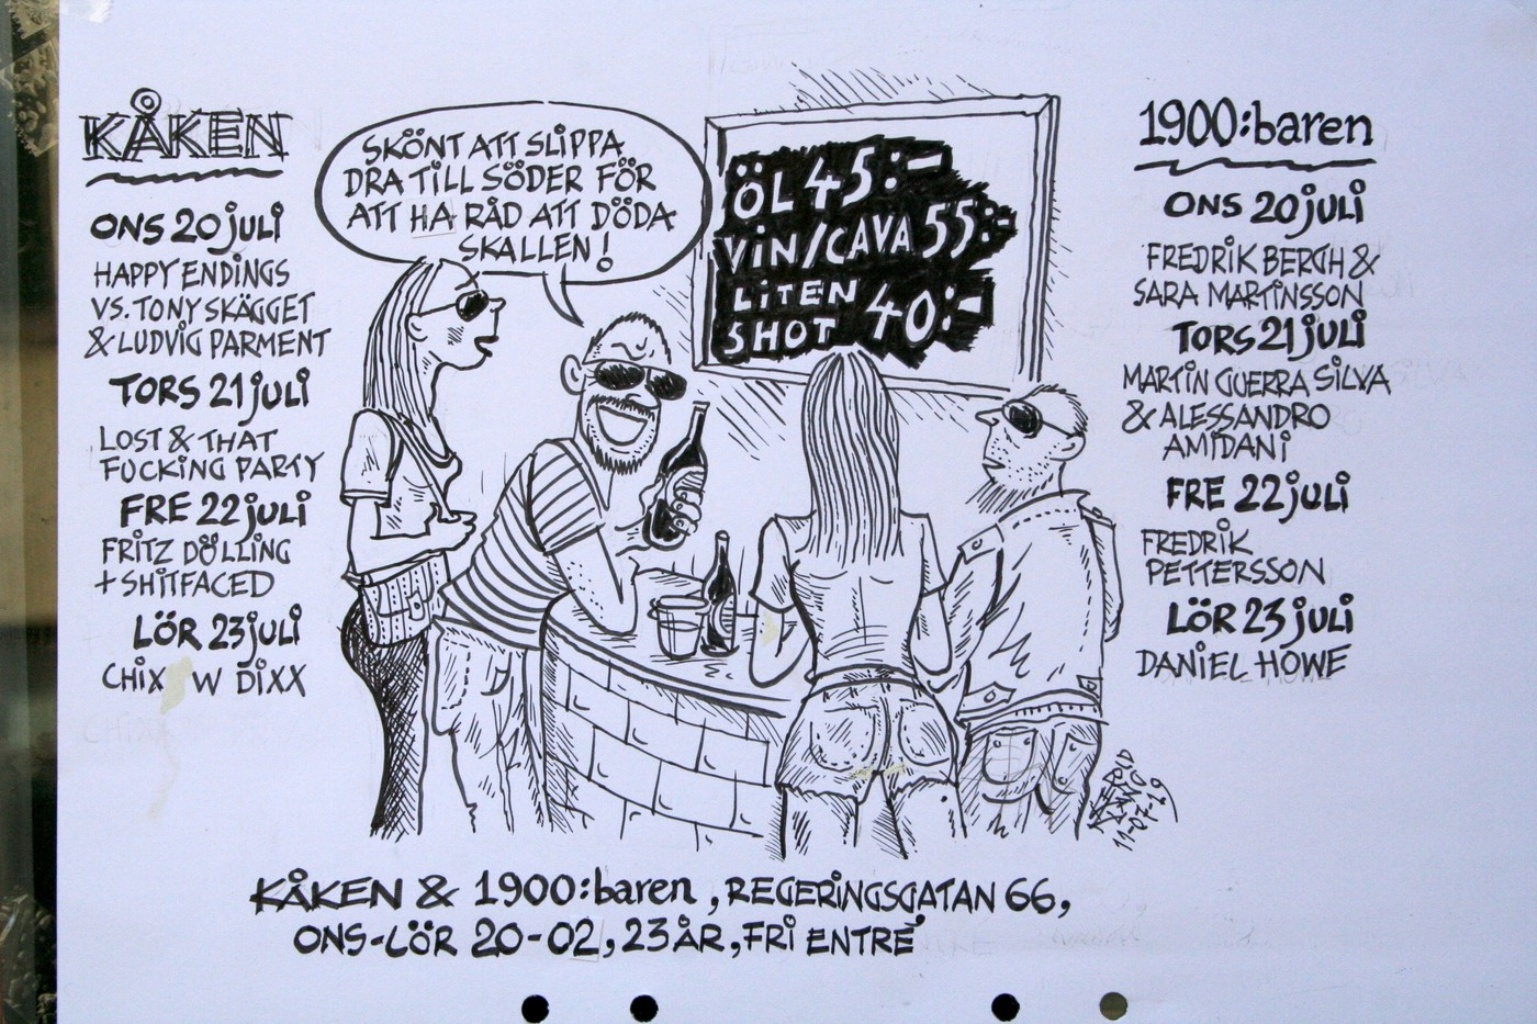 KÅKEN
ONS 20 juli
HAPPY ENDINGS
VS. TONY SKÄGGET
& LUDVIG PARMENT
TORS 21 juli
LOST & THAT
FUCKING PARTY
FRE 22 juli
FRITZ DÖLLING
+ SHITFACED
LÖR 23 juli
CHIX W DIXX
SKÖNT ATT SLIPPA
DRA TILL SÖDER FÖR
ATT HA RÅD ATT DÖDA
SKALLEN!
ÖL 45:-
VIN/CAVA 55:-
LITEN
SHOT 40:-
1900:baren
ONS 20 juli
FREDRIK BERGH &
SARA MARTINSSON
TORS 21 juli
MARTIN GUERRA SILVA
& ALESSANDRO
AMIDANI
FRE 22 juli
FREDRIK
PETTERSSON
LÖR 23 juli
DANIEL HOWE
11-07-19
KÅKEN & 1900:baren, REGERINGSGATAN 66,
ONS-LÖR 20-02, 23 ÅR, FRI ENTRÉ